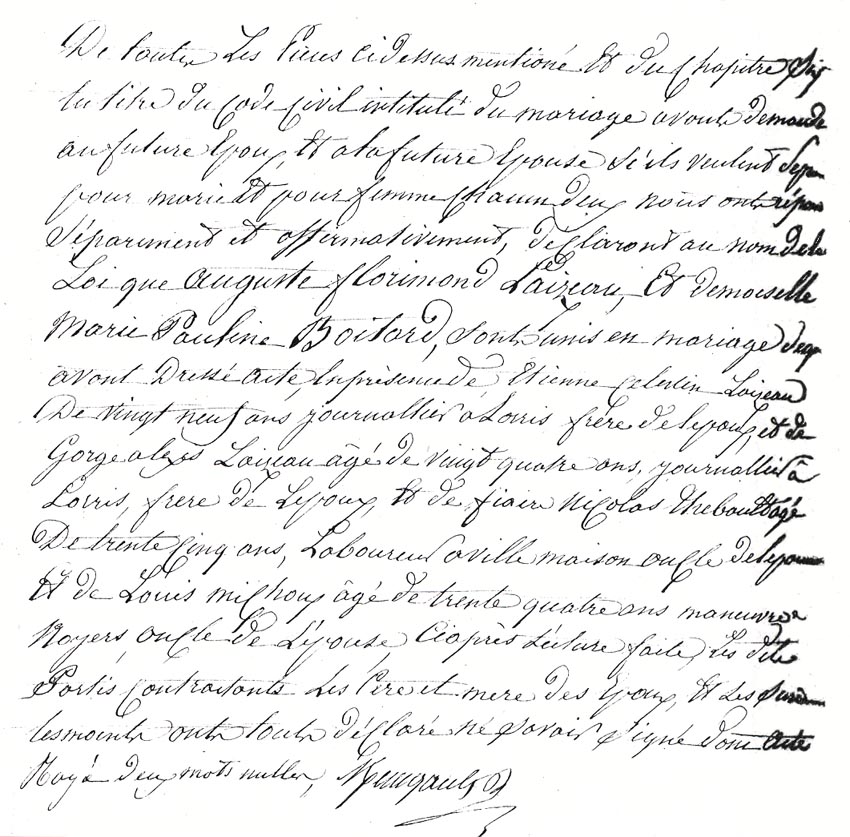 De toutes Les pieces cidessus mentioné Et du Chapitre Six
du titre du Code Civil intitulé du mariage avons demandé
au future Epoux, Et a la future Epouse S'ils veulent Se
pour mari Et pour femme Chacun deux nous ont répon
Séparément et affirmativement, déclarons au nom de la
Loi que Auguste florimond Loizeau, Et demoiselle
Marie Pauline Boitard, Sont unis en mariage
avons Dressé acte, En présence de Etienne Celestin Loizeau
De vingt neuf ans journallier a Lorris frère de lepoux, et de
Gorge alexis Loizeau âgé de vingt quatre ans, journallier à
Lorris, frere de Lepoux, Et de fiacre Nicolas thebault agé
De trente Cinq ans, Laboureur a ville maison oncle de
Et de Louis michoux âgé de trente quatre ans manuvre a
Noyers, oncle de L'épouse, Ciaprès Lecture faite, Les dite
Partis Contractants Les Pere et mere des Epoux, Et Les
tesmoints ont touts déclaré ne Savoir Signé dont acte
Rayé deux mots nulles,